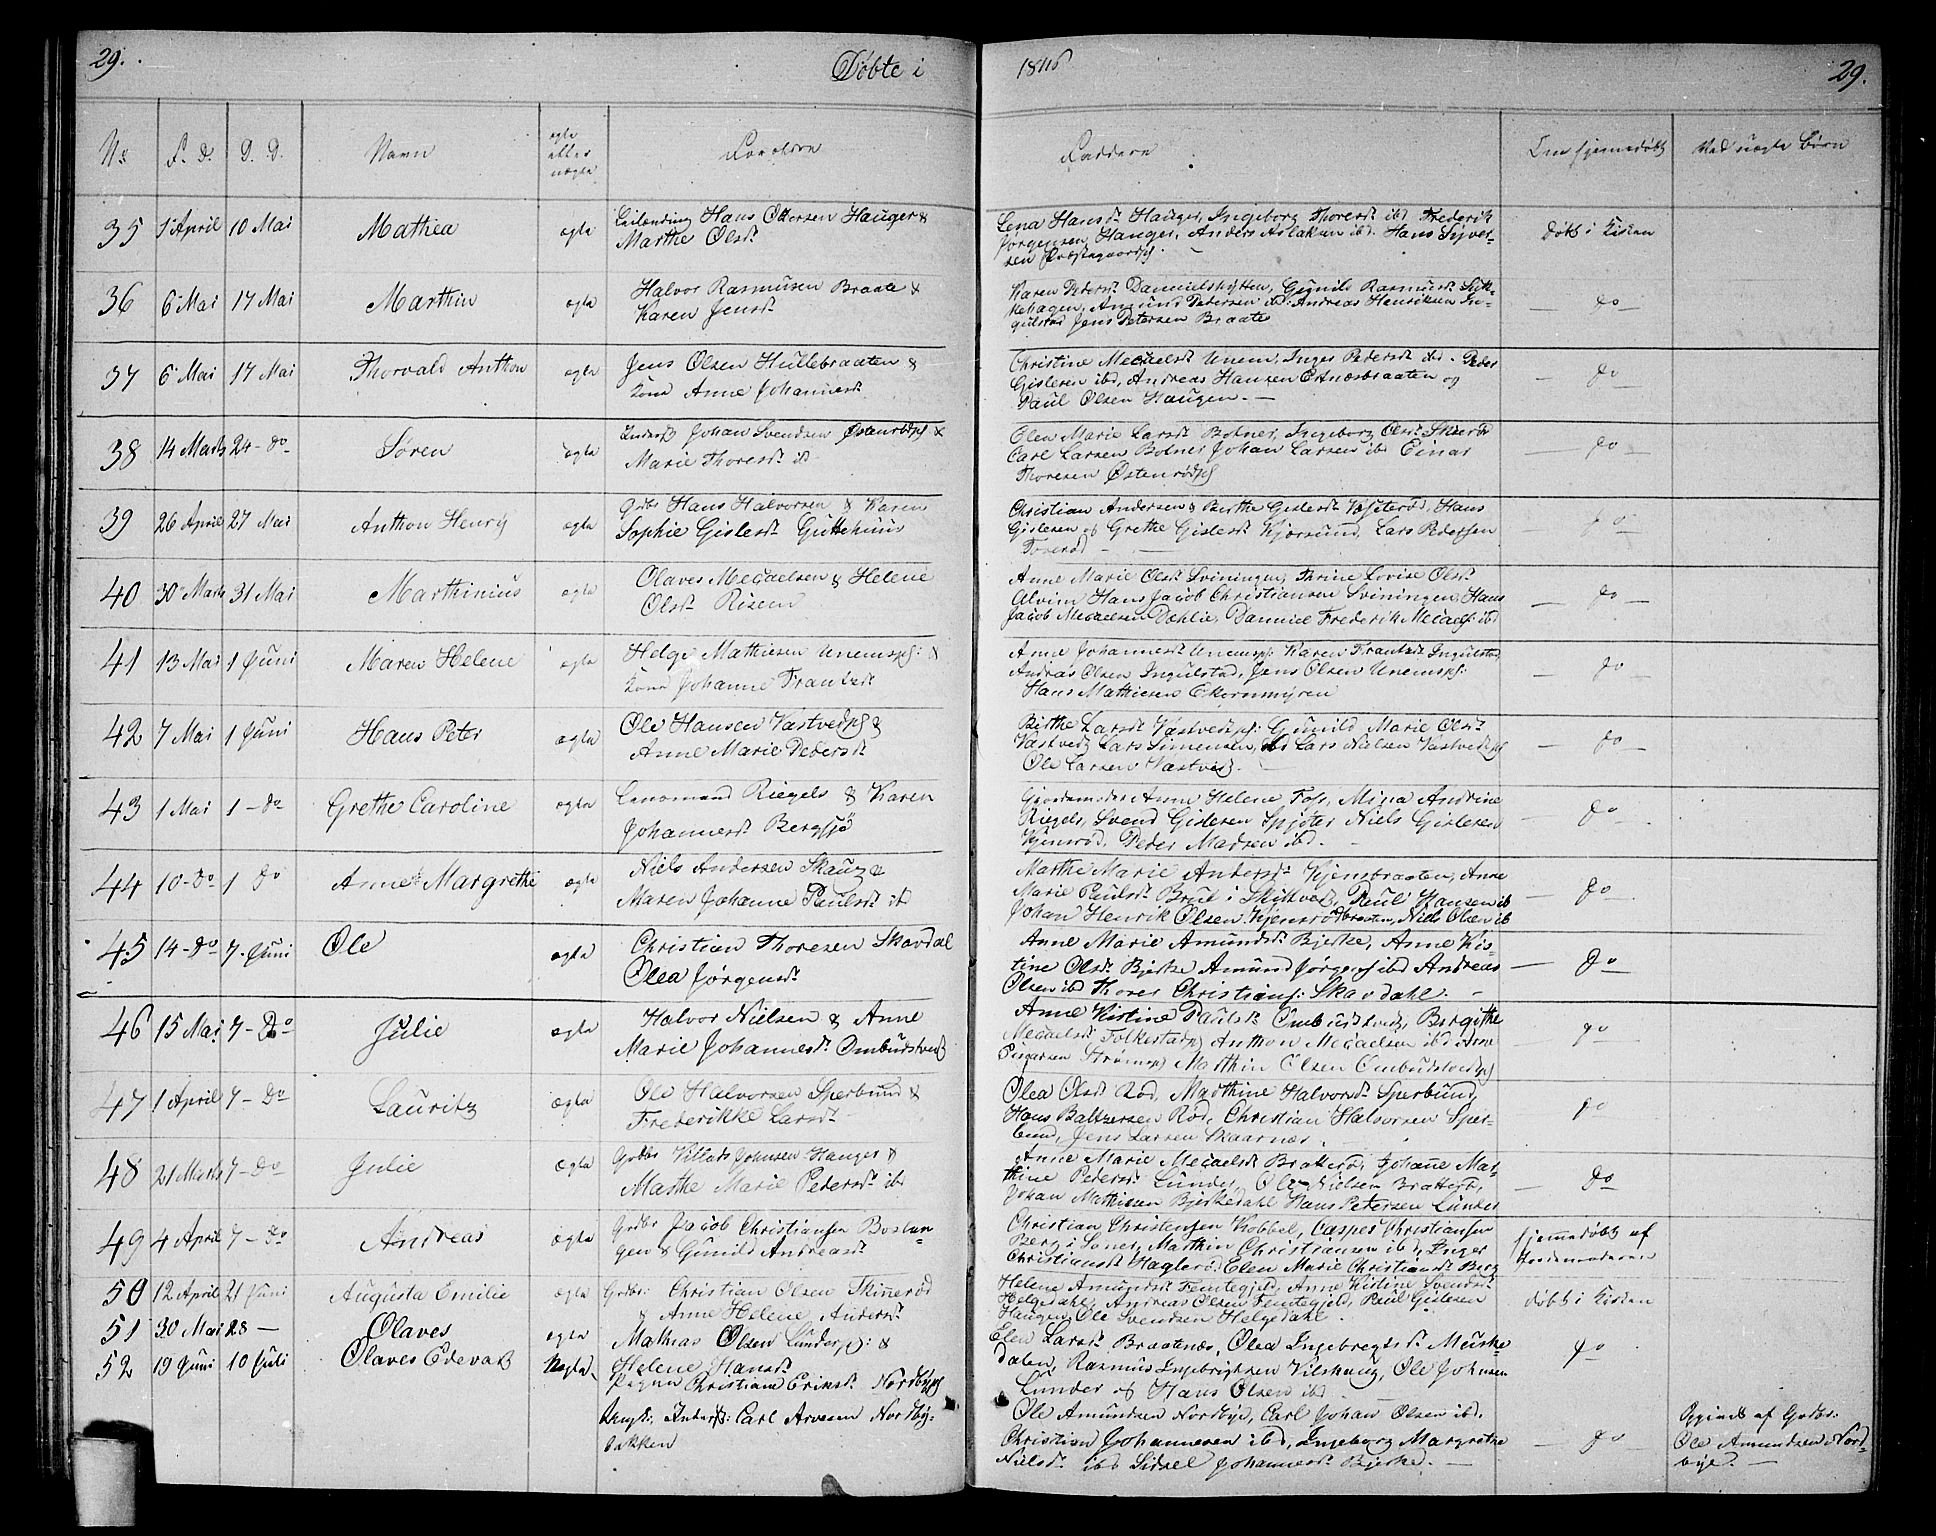 29.
Døbte i
1846
29.
No
F. D.
D. D.
Navn
ægte eller uægte
Forældre
Faddere
Om hjemmedøbt
Ved uægte Børn
35 1 April 10 Mai Mathea ægte Leilending Hans Ottersen Hauger &
Marthe Olsdr
Lena Hansdr Hauger, Ingeborg Thoresdr ibd Frederik
Jørgensen Hauger, Anders Aslaksen ibd. Hans Syver-
sen Præstegaardspl
Døbt i Kirken
36 6 Mai 17 Mai Marthin ægte Halvor Rasmusen Braate &
Karen Jensdr
Karen Pedersdr Danielshytten, Gunild Rasmusdr
Amund Pedersen ibd Andreas Henriksen In-
gulstad Jens Petersen Braate
— do —
37 6 Mai 17 Mai Thorvald Anthon ægte Jens Olsen Hullebraaten &
Kone Anne Johannesdr
Christine Mecaelsdr Unem, Inger Pedersdr ibd. Peder
Gislesen ibd, Andreas Hansen Estnæsbraaten og
Paul Olsen Haugen. —
— do —
38 14 Marts 24 - do Søren ægte Inderst Johan Svendsen Østenrødpl &
Marie Thoresdr ib
Elen Marie Larsdr Botner, Ingeborg Olsdr
Carl Larsen Botner Johan Larsen ibd Einar
Thoresen Østenrødpl
— do —
39 26 April 27 Mai Anthon Henry ægte Grdbr Hans Halvorsen & Karen
Sophie Gislesdr Guttehuus
Christian Andersen & Berthe Gislesdr Kjølerød, Hans
Gislesen og Grethe Gislesdr Kjørsund, Lars Pedersen
Torerød —
do
40 30 Marts 31 Mai Marthinius ægte Olaves Mecaelsen & Helene
Olsdr Risem
Anne Marie Olsdr Sviningen, Thrine Lovise Olsdr
Alvim Hans Jacob Christiansen Sviningen, Hans
Jacob Mecaelsen Dahlie, Danniel Frederik Mecaels: ibd
— do —
41 13 Mai 1 Juni Maren Helene ægte Helge Mathiesen Unemspl: &
Kone Johanne Frantzdr
Anne Johannesdr Unemspl: Karen Frantzdr Ingulstad,
Andreas Olsen Ingulstad, Jens Olsen Unemspl:
Hans Mathiesen Ekornmyren
— do —
42 7 Mai 1 Juni Hans Peter ægte Ole Hansen Vastvedpl &
Anne Marie Pedersdr
Birthe Larsdr Vastvedpl: Gunild Marie Olsdr
Vastved Lars Simensen ibd Lars Nielsen Vastvedpl
Ole Larsen Vastved. —
— do —
43 1 Mai 1 - do Grethe Caroline ægte Lensmand Riegels & Karen
Johannesdr Bergsjø
Gjordemoder Anne Helene Foss, Mina Andrine
Riegels, Svend Gislesen Spjøter Niels Gislesen
Kjenrød, Peder Madsen ibd. —
— do —
44 10 - Do 1 Do Anne Margrethe ægte Niels Andersen Skaug &
Maren Johanne Paulsdr ib
Marthe Marie Andersdr Kjensbraaten, Anne
Marie Paulsdr Brut i Skiptvet, Paul Hansen ib
Johan Henrik Olsen Kjensrødbraaten, Niels Olsen ib
— do —
45 14 - Do 7. Juni Ole ægte Christian Thoresen Skavdal
Olea Jørgensdr
Anne Marie Amundsdr Bjerke, Anne Kis-
tine Olsdr Bjerke Amund Jørgens ibd Andreas
Olsen ibd Thorer Christians: Skavdahl. —
— do
46 15 Mai 7 - Do Julie ægte Halvor Nielsen & Anne
Marie Johannesdr Ombudstvedt
Anne Kistine Paulsdr Ombudstvedt, Birgithe
Mecaelsdr Folkestadpl Anthon Mecaelsen ibd Arne
Strømspl Marthin Olsen Ombudstvedpl
— do
47 1 April 7 - Do Lauritz ægte Ole Halvorsen Sperbund &
Frederikke Larsdr
Olea Olsdr Rød, Marthine Halvorsdr Sperbund,
Hans Baltzersen Rød, Christian Halvorsen Sper-
bund, Jens Larsen Skaarnæs.
do
48 21 Marts 7 - Do Julie ægte Grdbr Villads Johnsen Hauger &
Marthe Marie Pedersdr ib
Anne Marie Mecaelsdr Bratterød, Johanne Mar-
thine Pedersdr Lunder, Ole Nielsen Bratterød,
Johan Mathisen Bjerkedahl Hans Petersen Lunder
— Do
49 4 April 7 - Do Andreas ægte Grdbr Jacob Christiansen Boslan-
gen & Gunild Andreasdr
Christian Christensen Kobbel, Casper Christiansen
Berg i Soner, Marthin Christiansen ibd, Inger
Christiansdr Haglerød Elen Marie Christiansdr Berg
Hjemmedøbt af
Jordemoderen
50 12 April 21 Juni Augusta Emilie ægte Grdbr: Christian Olsen Skinerød
& Anne Helene Andersdr
Helene Amundsdr Femtegjeld, Anne Kistine Svendsdr
Helgedahl, Andreas Olsen Femtegjeld, Paul Gislesen
Haugen, Ole Svendsen Helgedahl.
Døbt i Kirken
51 30 Mai 28 — Olaves ægte Mathias Olsen Lunderpl: &
Helene Hansdr
Elen Larsdr Braatenæs, Olea Ingebregtsdr Meiske-
dalen, Rasmus Ingebrigtsen Vilshaug, Ole Johnsen
Lunder og Hans Olsen ibd.
do
52 19 Juni 10 Juli Olaves Edevart Uægte Pigen Christiane Eriksdr Nordbypl
Ungk: Inderst: Carl Arvesen Nordby-
bakken
Ole Amundsen Nordbye, Carl Johan Olsen ibd.
Christian Johannesen ibd, Ingeborg Margrethe
Nielsdr ibd Sidsel Johannesdr Bjerke. —
— do
Opgivet af Grdbr:
Ole Amundsen Nord-
bye. —